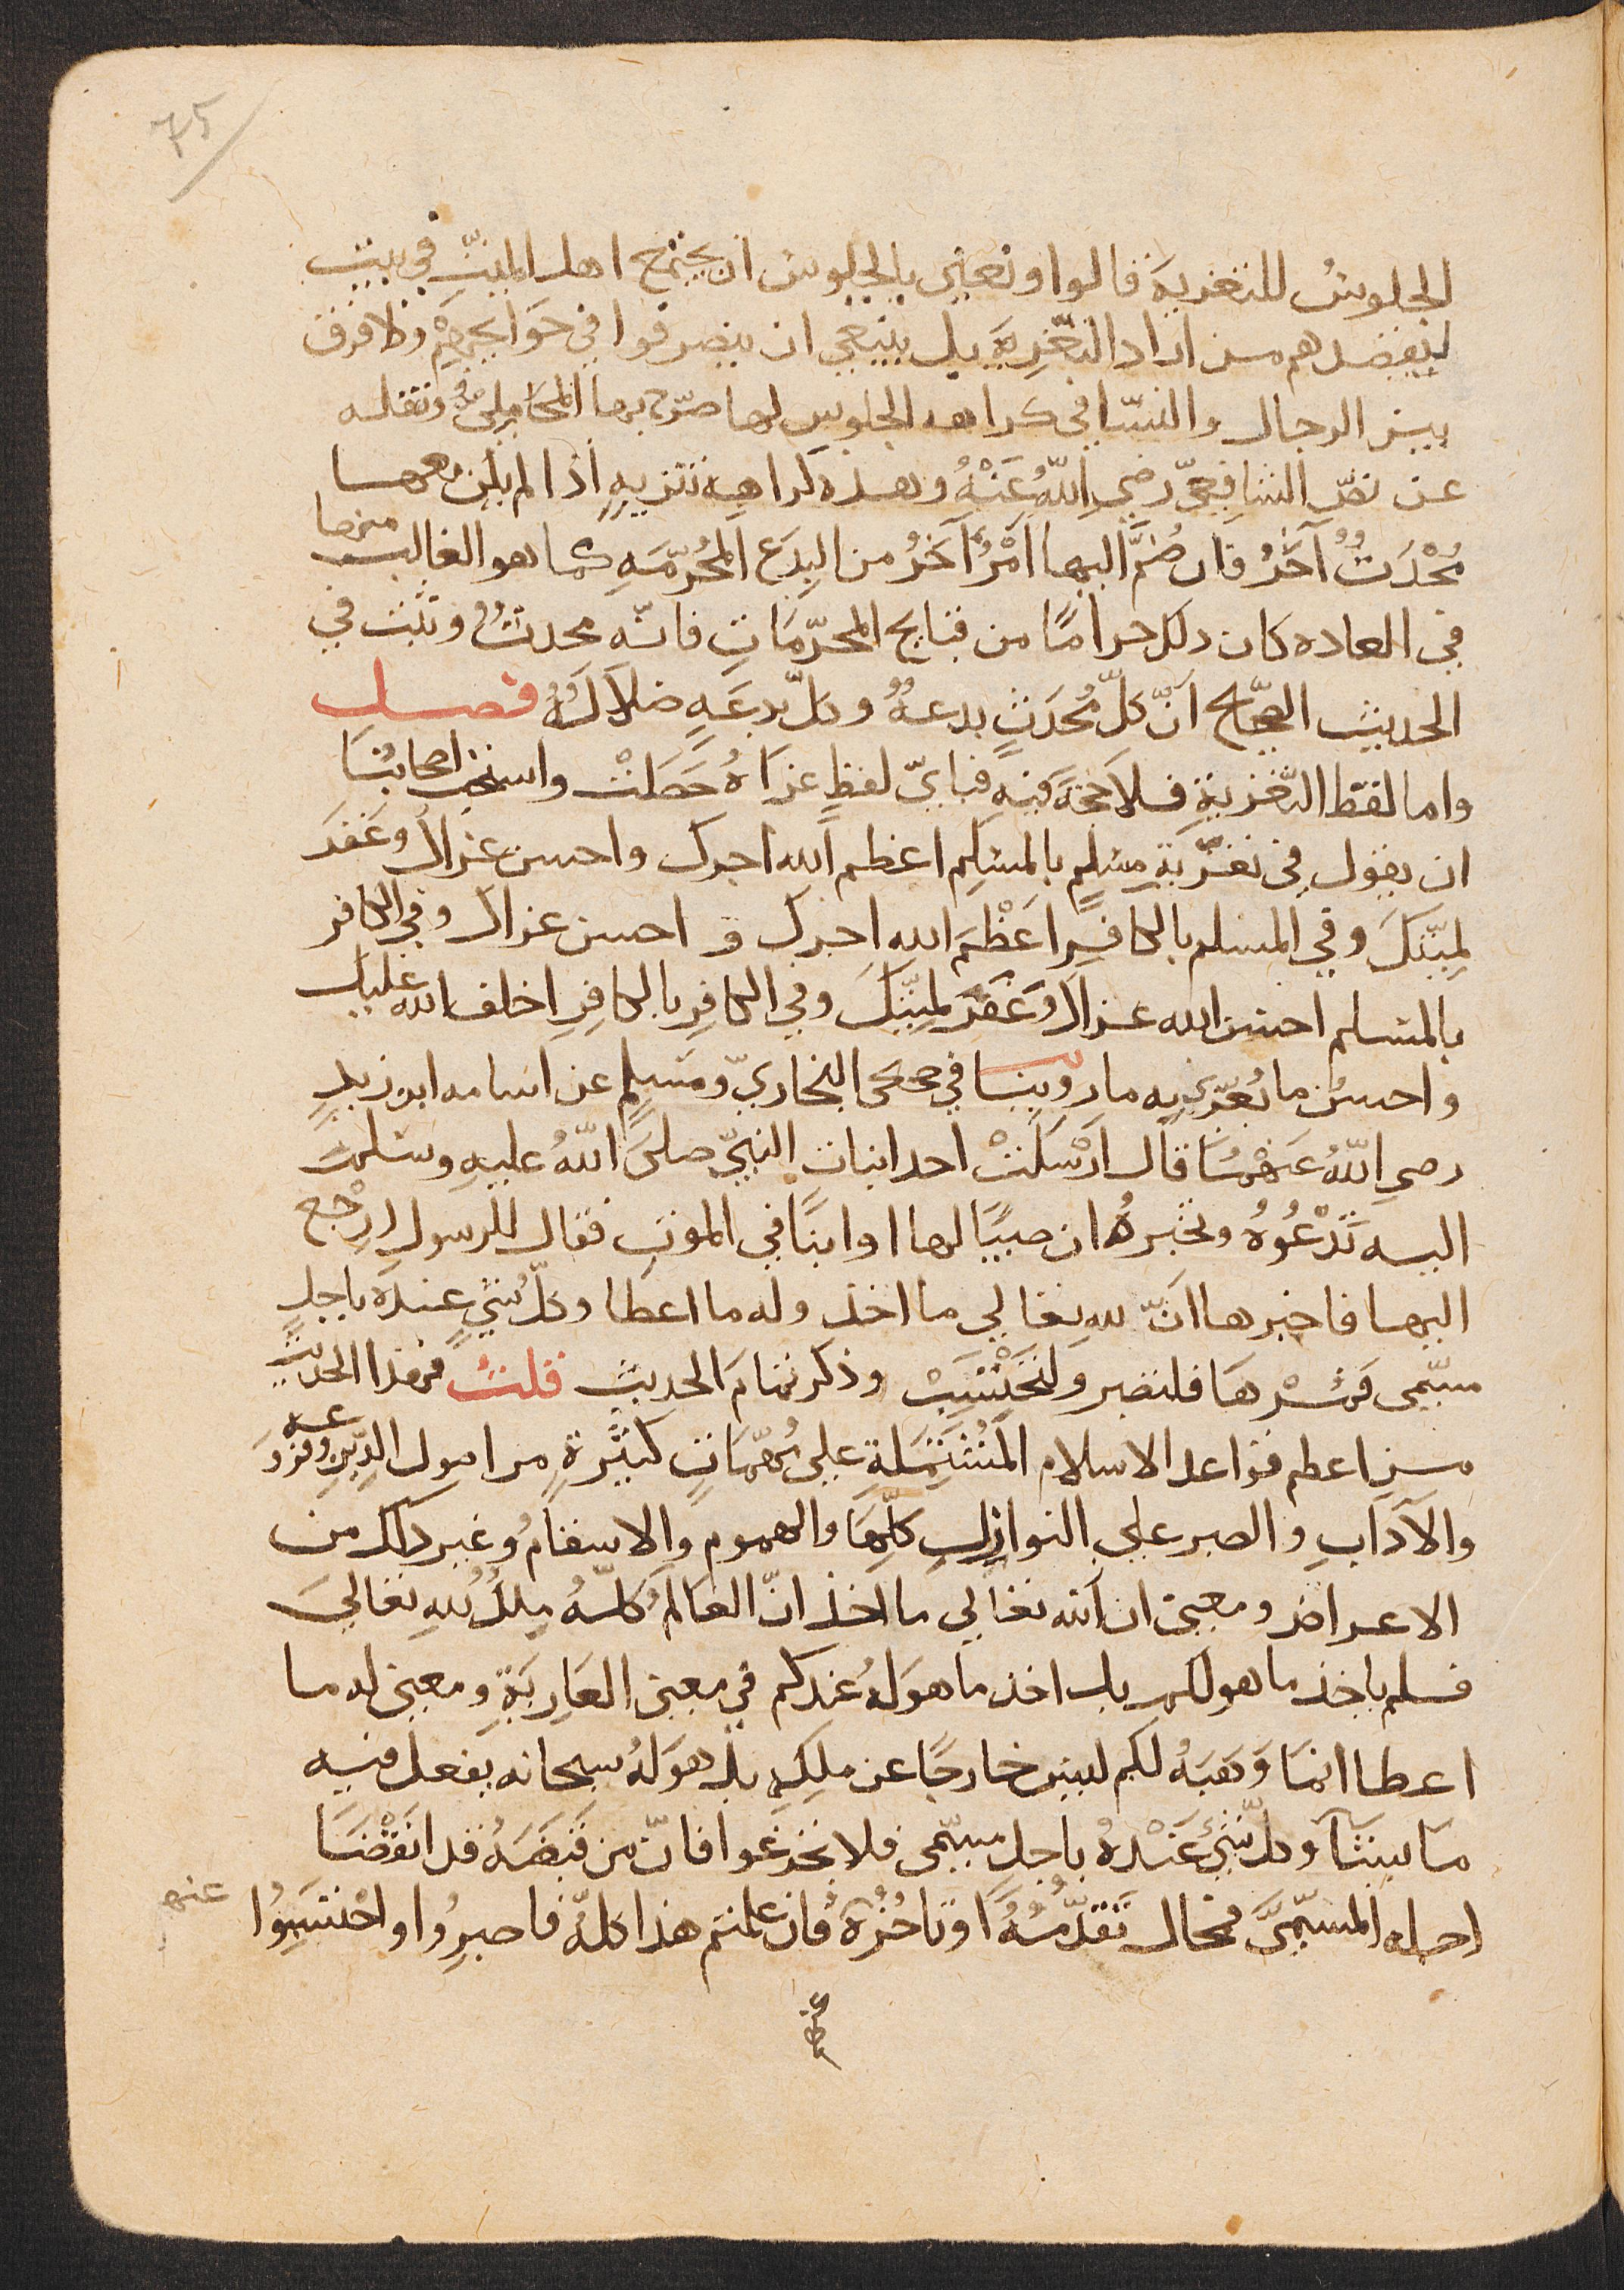 ٧٥
الجلوسُ للتعزيةِ قالوا ونعني بالجلوس ان يجتمع اهل الميّتِ في بيتٍ
ليقصدهم من اراد التعّزِيةَ بل ينبغي ان ينصرفوا في حَوَايجِهِمْ ولا فرق
بين الرجال والنسّا في كراهه الجلوسِ لها صرّح بها المحَامِلِيُّ ونقله
عن نصّ الشافِعيِّ رضي اللّهُ عَنْهُ وهذه كراهية تنزيهٍ اذا لم يكن معها
مُحْدَثٌ آخَرُ فان ضُمَّ اليها امْرٌ آخَرُ من البِدَعِ المُحَرّمَهِ كما هو الغالب منها
في العاده كان ذلك حرامًا من قبايح المحرّمَاتِ فانّه محدثٌ وثبت في
الحديث الصحيّح انّ كلّ مُحْدَثٍ بدعهٌ وكلّ بدعَهٍ ضلالَهٌ فصل
واما لفظ التّعْزيةِ فلا حجَرَ فيهِ فبايّ لفظٍ عزاهُ حَصَلَتْ واستحب اصحابُنَا
ان يقول في تعزّيَةِ مسْلِمٍ بالمسْلِمِ اعظم اللّه اجرك واحسن عزاك وغَفَرَ
لميّتكَ وفي المسلم بالكافرِ اعَظْمَ الله اجرك و احسن عزاك وفي الكافر
بالمسْلم احسن الله عزاك وغَفَرَ لميّتكَ وفي الكافِرِ بالكافِرِ اخلف الله عليك
واحسنُ ما يُعَزّي به ما روينا في صحيحي البخاريّ ومسْلِمٍ عن اسامه ابن زيدٍ
رضي اللّهُ عَنهمُا قال ارْسَلَتْ احدا بنات النبيّ صلىَّ اللّهُ عليهِ وسلم
اليه تَدْعُوُهُ وتخبرهُ ان صبيًا لها او ابنًا في الموتِ فقال للرسولِ ارْجع
اليها فاخبرها انّ للهِ تعالي ما اخذ وله ما اعطا وكلّ شيٍ عندَهُ باجلٍ
مسّمى فَمُرْهَا فلتصبر ولتَحْتسَبْ وذكر تمامَ الحديثِ قلتُ فهذا الحديث
من اعظم قواعد الاسلام المُشْتَمَلة علي مُهمّاتٍ كثيرةٍ من اصول الدِينِ وفروعه
والآدابِ والصبر علي النوازلِ كلِّهَا والهمومِ والاسقامُ وغير ذلك من
الاعراض ومعنى ان لله تعالي ما اخذ انّ العَالمَ كلّهُ مِلكٌ للهِ تعاليَ
فلم ياخذ ما هو لكم بل اخذ ما هوَ لهُ عندكم في معنى العَارِيَةِ ومعنى له ما
اعطا انمَا وَهَبَهُ لكم ليس خارجًا عن ملكِهِ بل هوَ لهُ سبحانه يفعل فيه
مَا يشآ وكلّ شيءٍ عَنْدهُ باجلٍ مسّمى فلا تجزعوا فانّ من قَبَضَهُ قد انقْضَا
اجله المسمّىَ فمحال تقدّمُهُ اوتاخُّرُهُ فاذ علمتم هذا كلّهُ فاصبِرُوا واحْتسَبِوُا
عنه